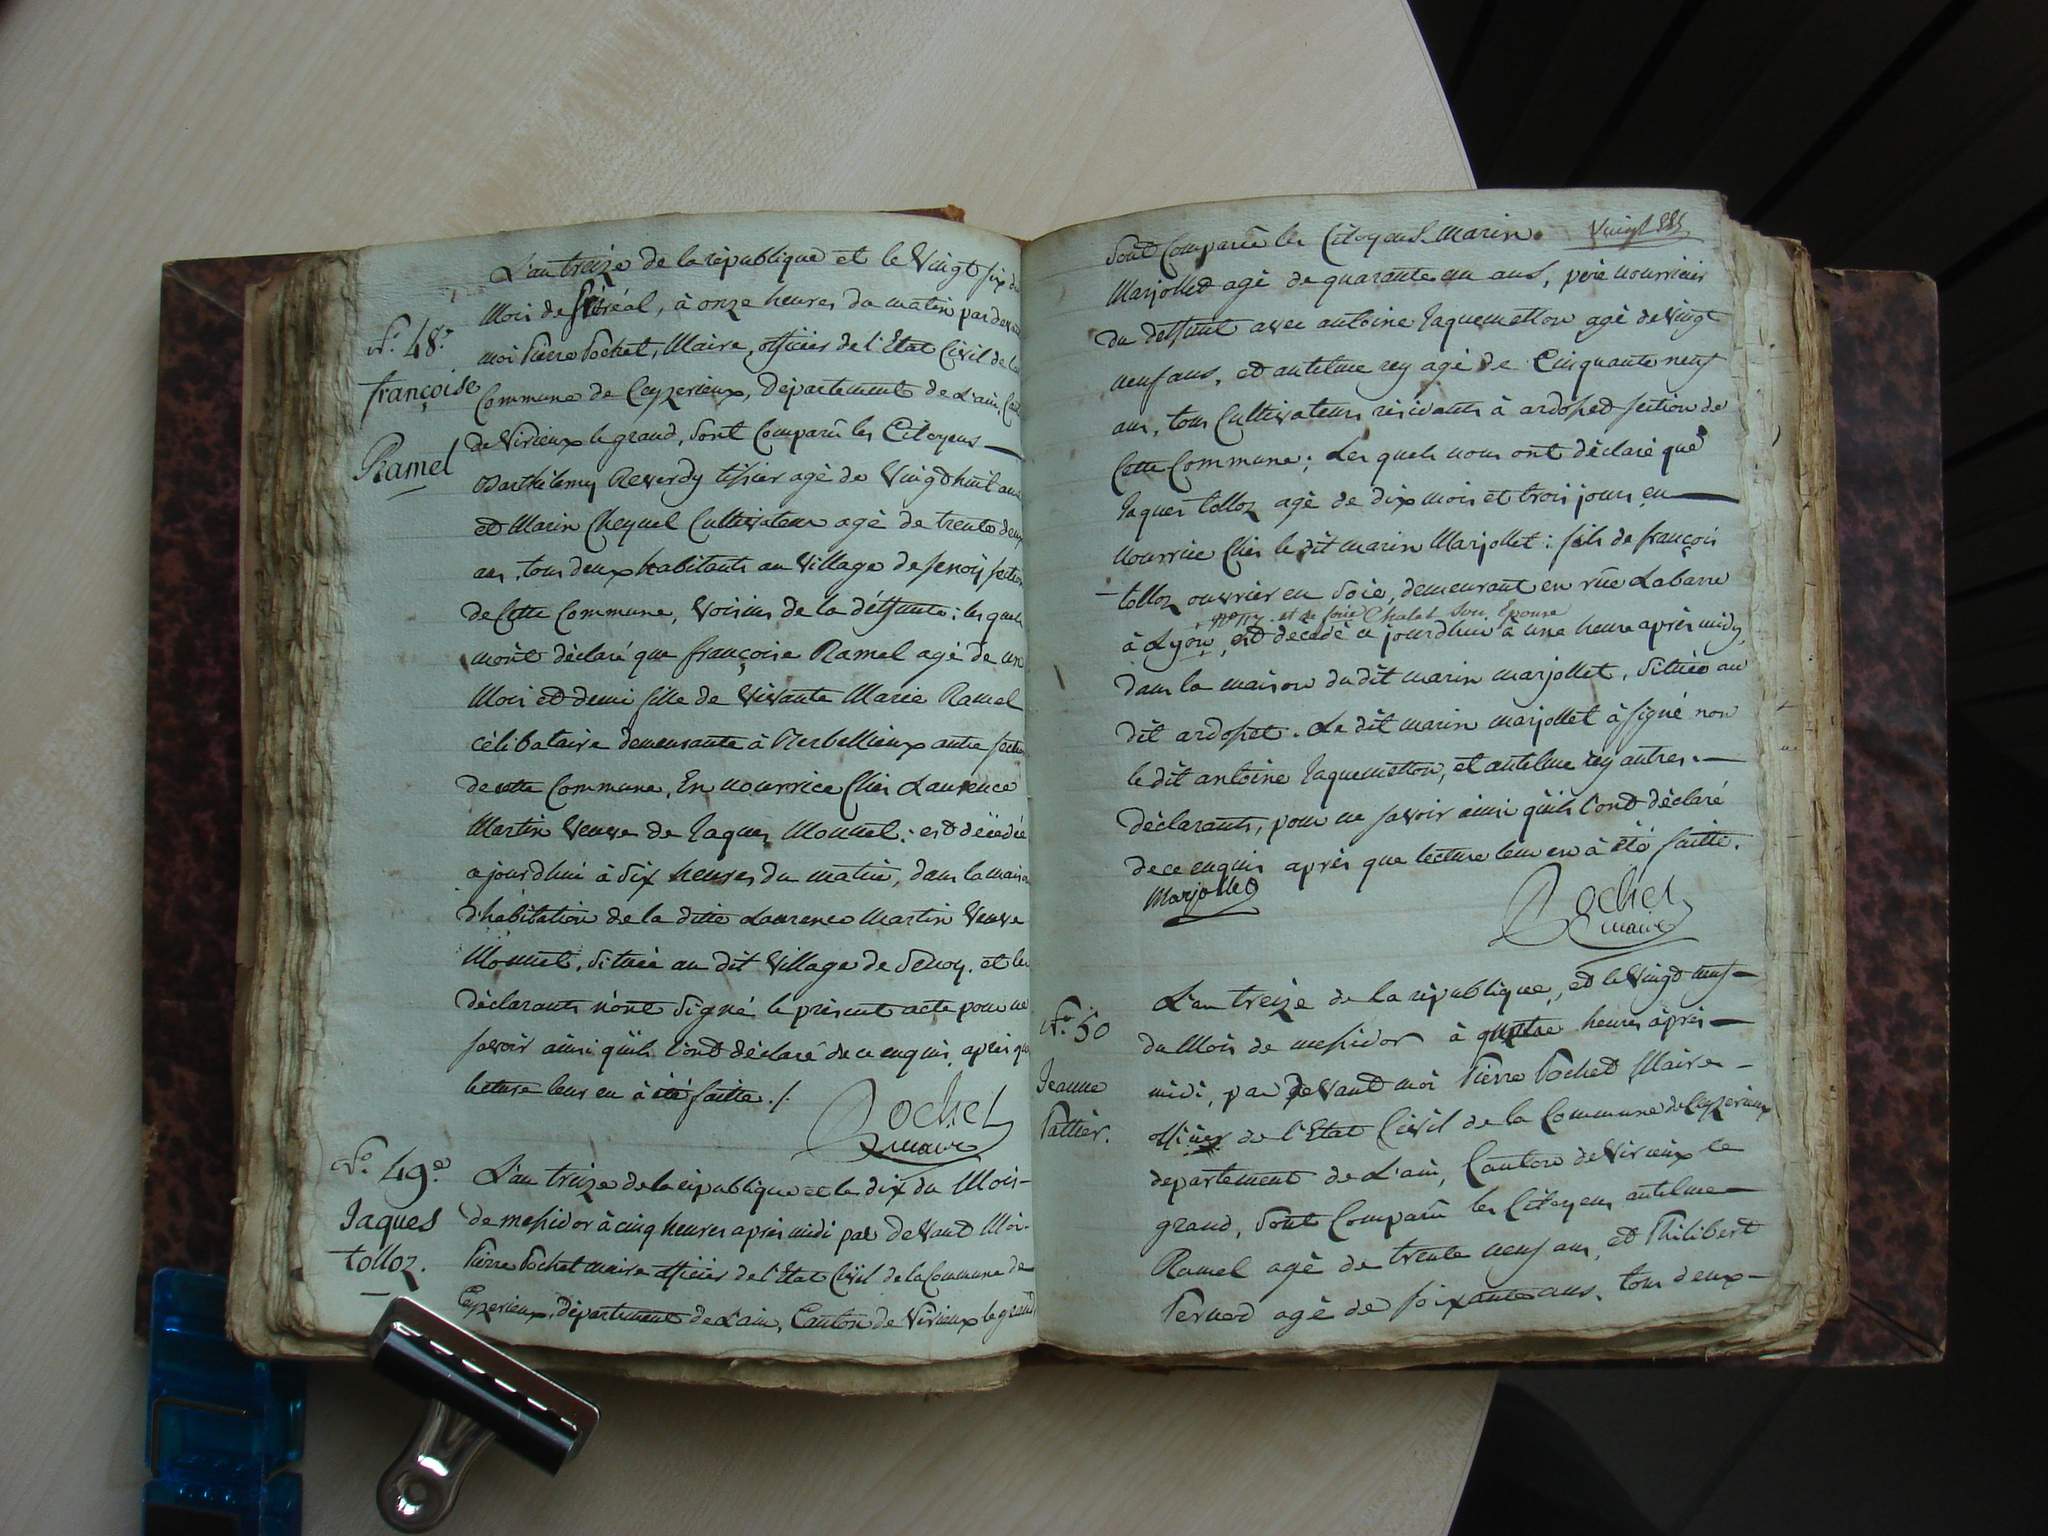 L'an treize de la republique et le Vingt six du
Mois de floréal, à onze heures du matin par devant
N.° 48.e
moi Pierre Pochet, Maire, officier de l'Etat Civil de la
françoise
Commune de Ceyzerieux, Département de L'ain, Canton
de Virieux le grand, sont Comparû les Citoyens
Ramel
Barthelemy Reverdy tissier agé de Vingt huit ans
et Marin Cheynel Cultivateur agé de trente deux
ans, tous deux habitants au Village de senoy section
de Cette Commune, Voisins de la déffunte : les quels
m'ont déclaré que françoise Ramel agé de un
Mois et demi fille de vivante Marie Ramel
célibataire demeurante à Avrbellieux autre section
de cette Commune, En nourrice Chés Laurence
Martin Veuve de Jaques Monnet : est décedée
ajourdhui à Six heures du matin, dans la maison
d'habitation de la ditte Laurence Martin Veuve
Monnet, située au dit Village de Senoy, et les
déclarants n'ont Signé le présent acte pour ne
savoir ainsi qu'ils l'ont déclaré de ce enquis, après que
lecture leur en à été faitte ./.
Pochet
maire
N.° 49.e
L'an treize de la republique et le dix du Mois
Jaques
de messidor à cinq heures après midi par deVant Moi
tolloz.
Pierre Pochet maire officier de l'Etat Civil de la Commune de
Ceyzerieux, Département de L'ain, Canton de Virieux le grand
Vingt
sont Comparû les Citoyens Marin
Marjollet agé de quarante un ans, père nourricier
du deffunt avec antoine Jaquemetton agé de Vingt
neuf ans, et antelme rey agé de Cinquante neuf
ans, tous Cultivateurs residants à ardosset section de
Cette Commune ; Les quels nous ont déclaré que
Jaques tolloz agé de dix mois et trois jours en
nourrice Chés le dit marin Marjollet : fils de françois
tolloz ouvrier en Soie, demeurant en rüe Labarre
et de Chalet Son Epouse
à Lyon, est décedé ce jourdhui à une heure après midy,
dans la maison du dit marin marjollet, Située au
dit ardosset. Le dit marin marjollet à signé non
le dit antoine Jaquemetton, et antelme rey autres
déclarants, pour ne savoir ainsi qu'ils l'ont déclaré
de ce enquis après que lecture leur en à été faitte.
Marjollet
Pochet
maire
L'an treize de la république, et le Vingt neuf
N.° 50
du Mois de messidor à quatre heures après
Jeanne
midi, par deVant moi Pierre Pochet Maire
Pattier.
officier de l'Etat Civil de la Commune de Ceyzerieux
departement de L'ain, Canton de Virieux le
grand, sont Comparû les Citoyens antelme
Ramel agé de trente neuf ans, et Philibert
Pernod agé de soixante ans, tous deux